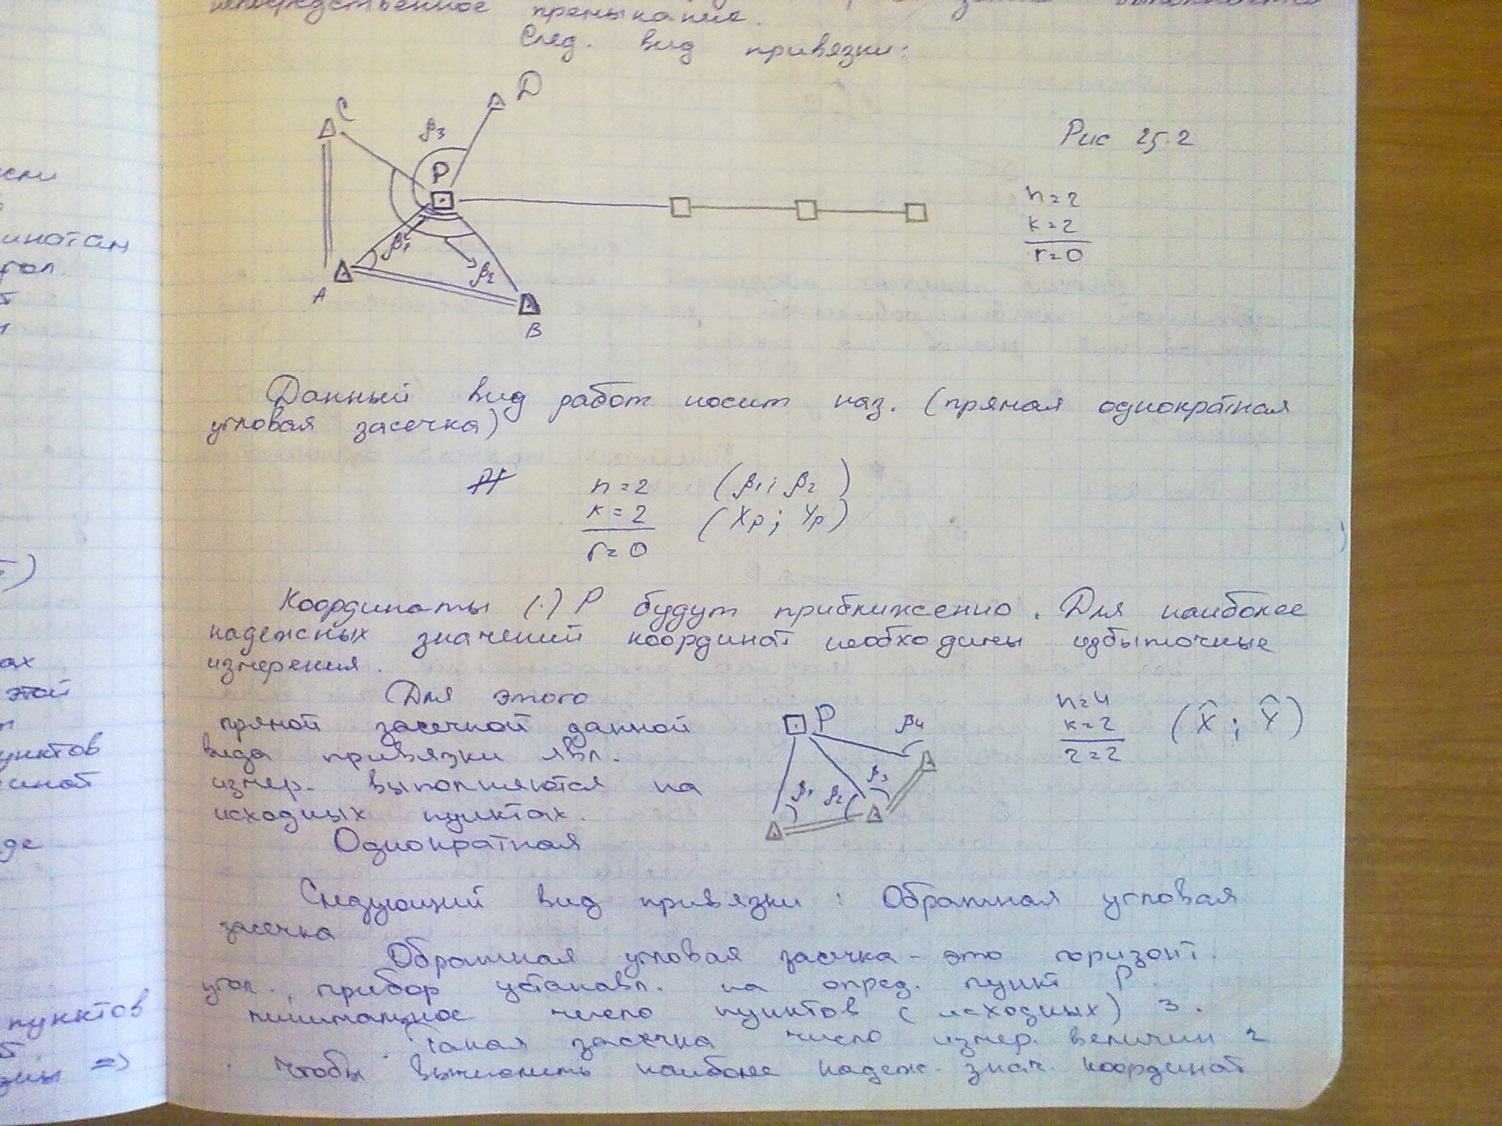 непосредственное примыкание.
След. вид привязки:
C
D
β3
P
Рис 25.2
n=2
k=2
r=0
β1
β2
A
B
Данный вид работ носит наз. (прямая однократная
угловая засечка)
n=2 (β1; β2)
k=2 (Xp; Yp)
r=0
Координаты (·) P будут приближенно. Для наиболее
надежных значений координат необходимы избыточные
измерения.
Для этого
прямой засечкой данной
вида привязки явл.
измер. выполняются на
исходных пунктах.
Однократная
P
β4
β1
β2
β3
n=4
k=2
r=2
(X̂; Ŷ)
Следующий вид привязки: Обратная угловая
засечка
Обратная угловая засечка - это горизонт.
угол., прибор устанавл. на опред. пункт P.
минимальное число пунктов (исходных) 3.
такая засечка число измер. величин 2
Чтобы вычислить наиболее надеж. знач. координат
ах
этой
пунктов
де
пунктов
=>